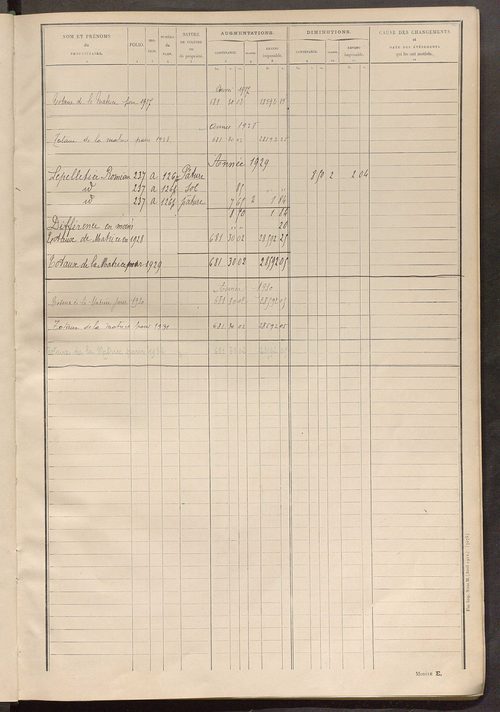 NOM ET PRÉNOMS du PROPRIÉTAIRE. FOLIO. SEC- TION. NUMÉRO du PLAN. NATURE DE CULTURE ou de propriété. AUGMENTATIONS. DIMINUTIONS. CAUSE DES CHANGEMENTS et DATE DES ÉVÉNEMENTS qui les ont motivés.
CONTENANCE. CLASSE. REVENU imposable. CONTENANCE. CLASSE. REVENU imposable.
Année 1927
Totaux de la Matrice pour 1927 681 30 02
Année 1928
Totaux de la matrice pour 1928 681 30 02 28592 25
Année 1929
Lepelletier Romain 237 A 126 Pâture 8 50 2 2 04
id 237 A 126 sol 85
id 237 A 126 pâture 7 65 2 1 84
8 50 1 84
Différence en moins 20
Totaux de Matrice en 1928 681 30 02 28592 25
Totaux de la Matrice pour 1929 681 30 02 28592 05
Année 1930
Totaux de la Matrice pour 1930 681 30 02 28592 05
Totaux de la matrice pour 1930 681 30 02 28592 05
Totaux de la Matrice pour
MODÈLE E.